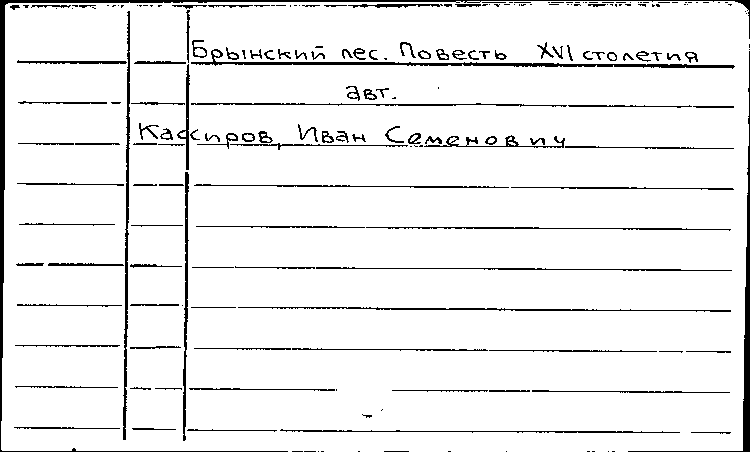 Брынский лес. Повесть XVI столетия
авт.
Кассиров, Иван Семенович